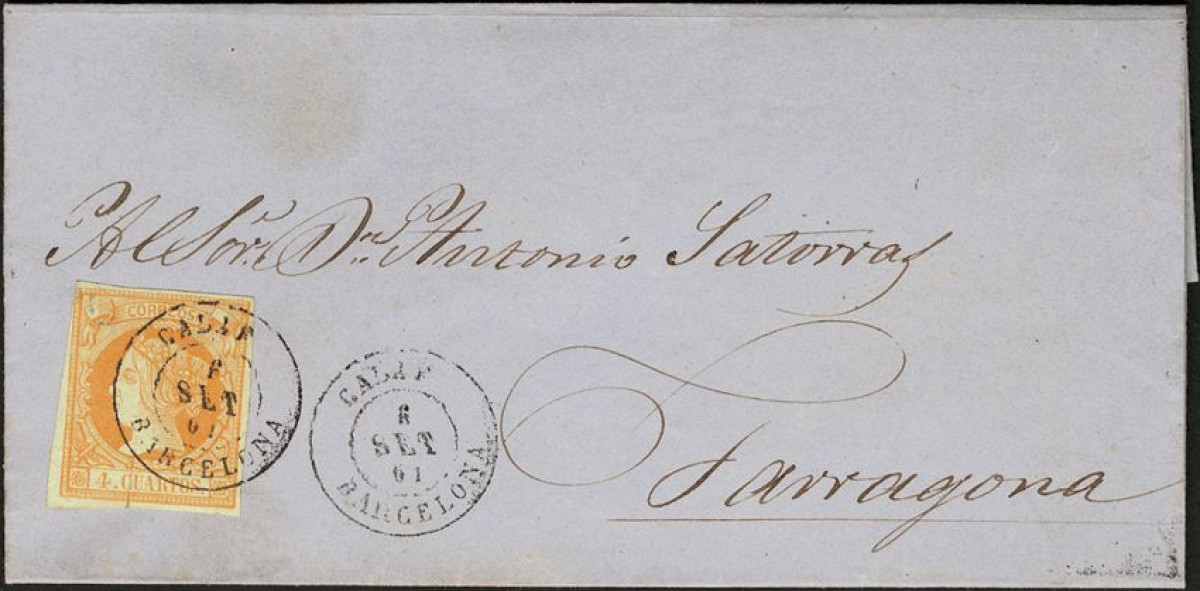 Al Sor. Dn. Antonio Satorras
CORREOS
CALAF
SET
61
BARCELONA
4. CUARTOS.
CALAF
8
SET
61
BARCELONA
Tarragona